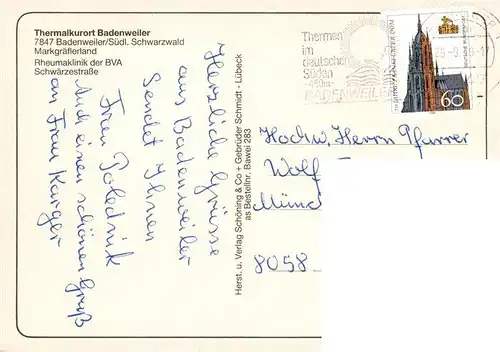 Thermalkurort Badenweiler
7847 Badenweiler/Südl. Schwarzwald
Markgräflerland
Rheumaklinik der BVA
Schwärzestraße
Herzliche Grüsse
aus Badenweiler
Sendet Ihnen
Frau Polednik
Auch einen schönen Gruß
an Frau Karger
Herst. u. Verlag Schöning & Co + Gebrüder Schmidt - Lübeck
as Bestellnr. Bawei 283
Thermen
im
deutschen
Süden
BADENWEILER
60
Hochw. Herrn Pfarrer
Wolf
Münc
8058